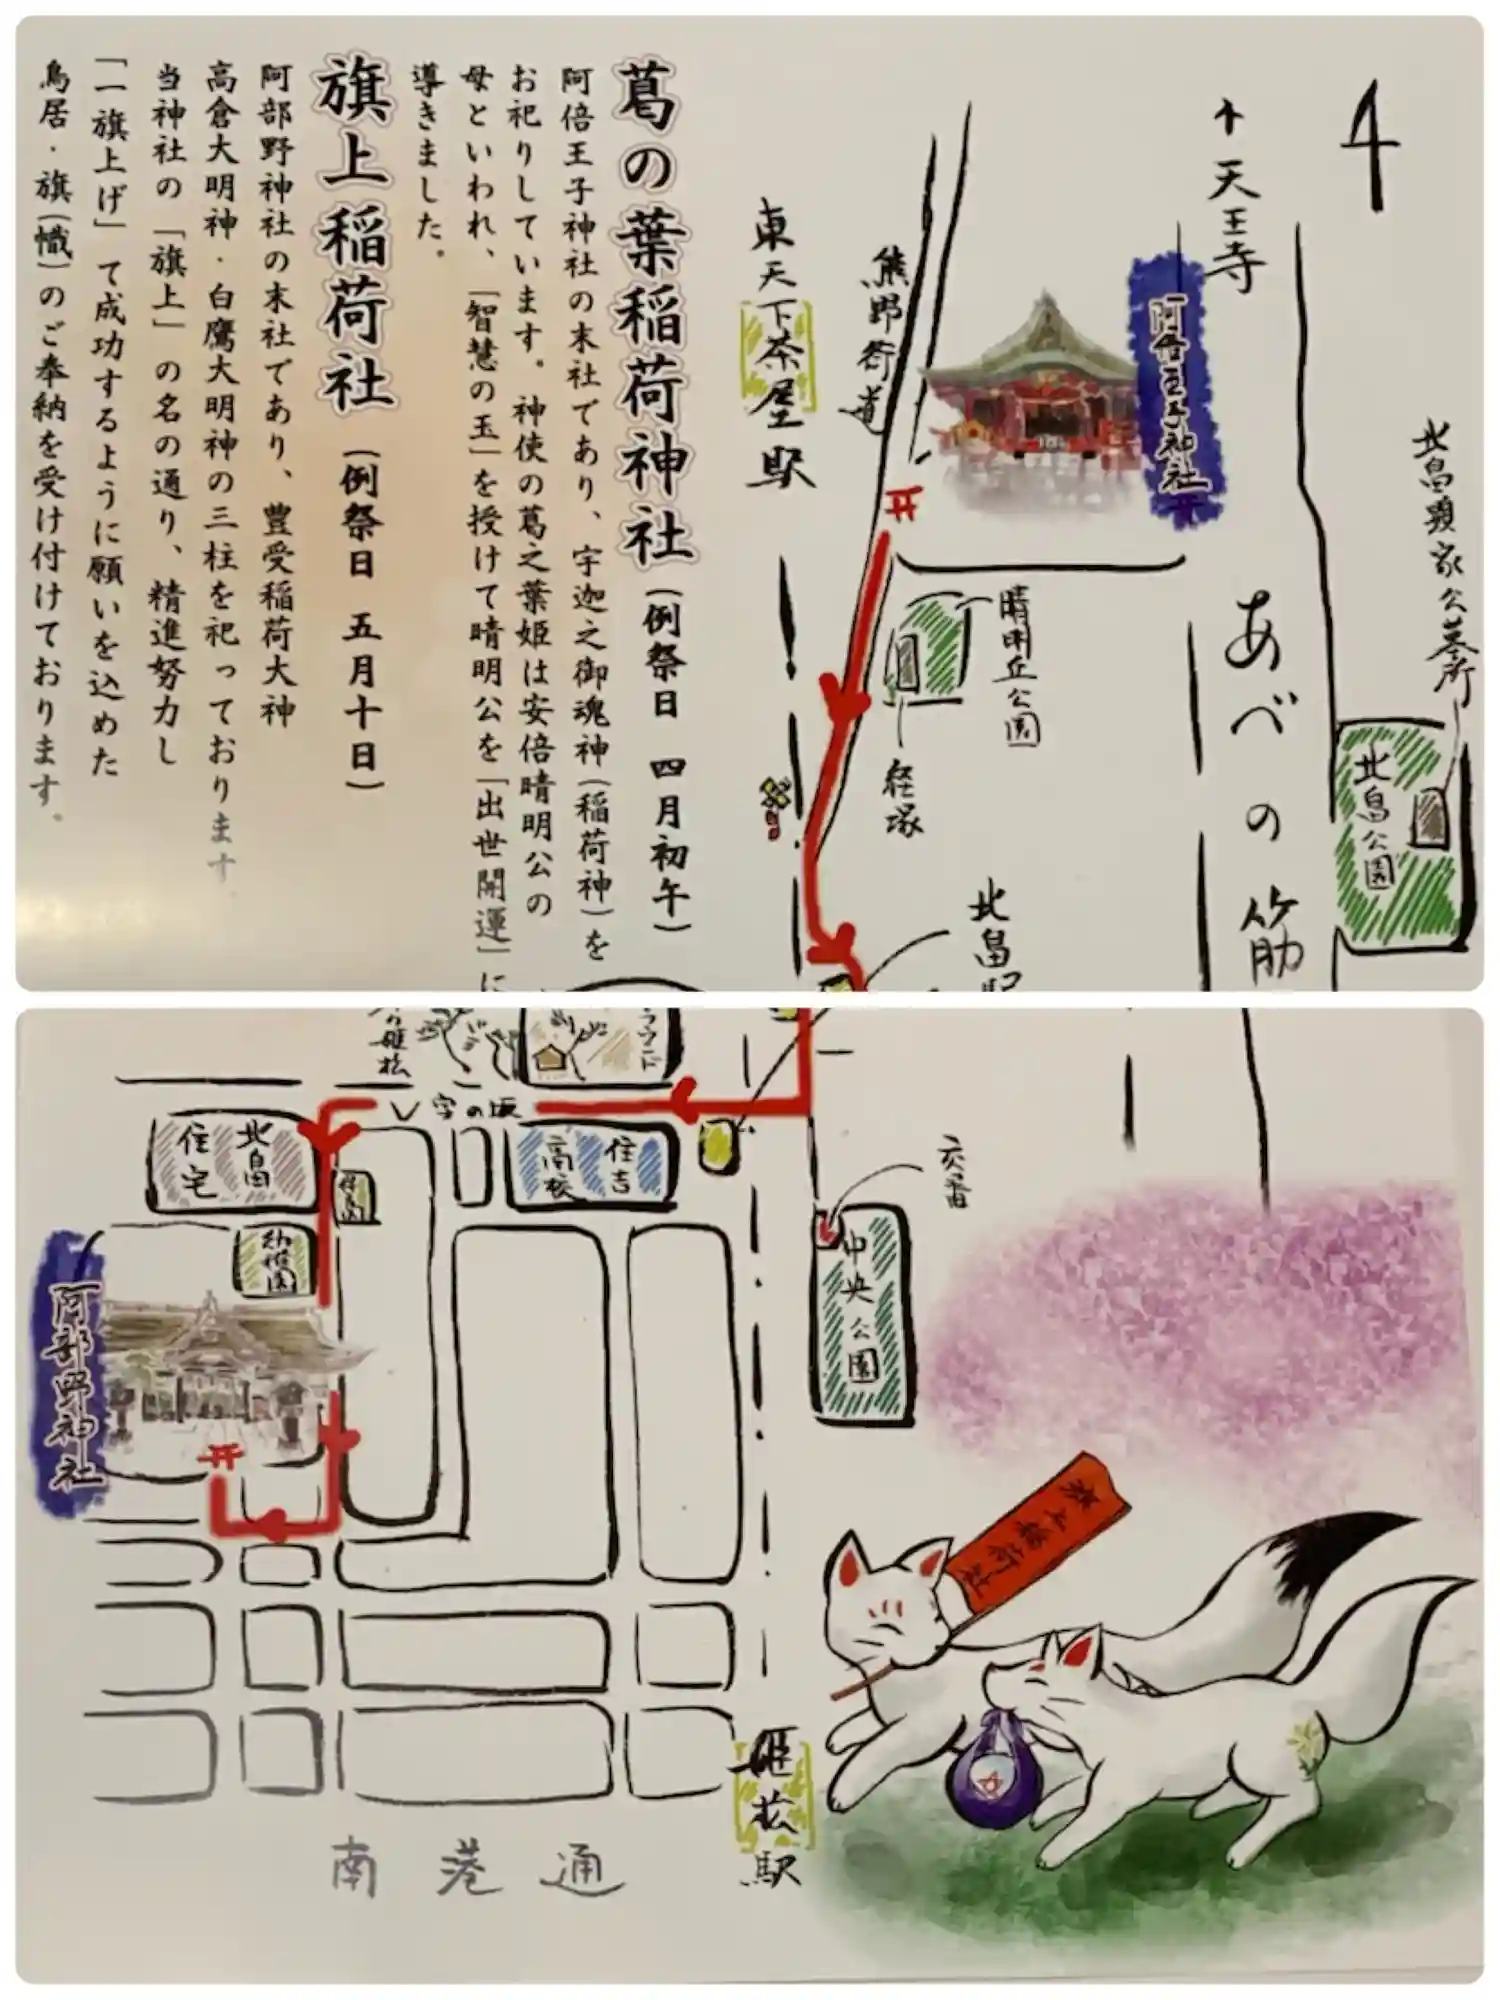 葛の葉稲荷神社（例祭日 四月初午）
阿倍王子神社の末社であり、宇迦之御魂神（稲荷神）を
お祀りしています。神使の葛之葉姫は安倍晴明公の
母といわれ、「智慧の玉」を授けて晴明公を「出世開運」に
導きました。
旗上稲荷社（例祭日 五月十日）
阿部野神社の末社であり、豊受稲荷大神
高倉大明神・白鷹大明神の三柱を祀っております。
当神社の「旗上」の名の通り、精進努力し
「一旗上げ」て成功するように願いを込めた
鳥居・旗（幟）のご奉納を受け付けております。
↑天王寺
阿倍王子神社
熊野街道
東天下茶屋駅
北畠顕家公墓所
晴明丘公園
経塚
あべの筋
北畠公園
北畠駅
字の坂
北畠
住宅
住吉
高校
幼稚園
交番
中央公園
阿部野神社
旗上稲荷社
姫松駅
南港通